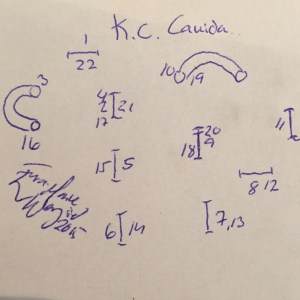 K.C. Cauida
1
22
10 19
3
16
4
2 21
17
20
18 9
11
15 5
8 12
6 14
7,13
2015